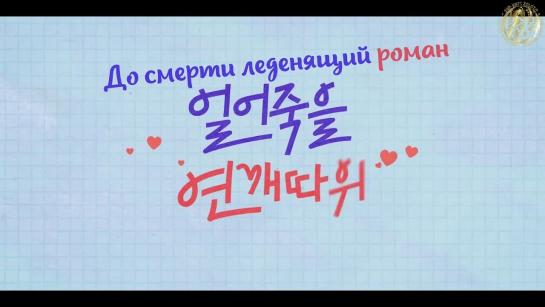 До смерти леденящий роман
얼어죽을
연애따위